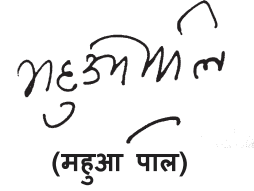 महुआ पाल
(महुआ पाल)